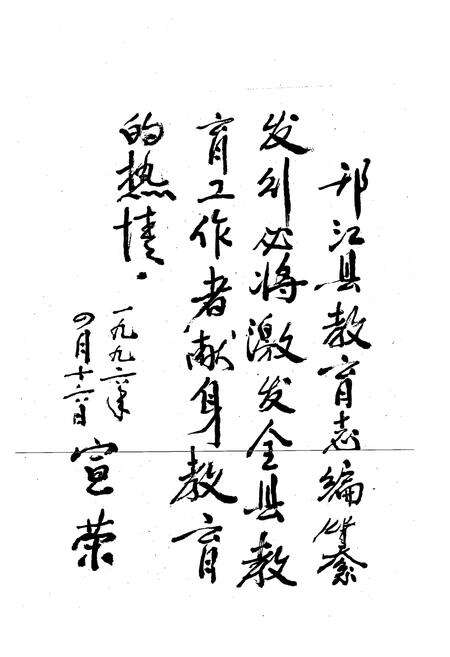 邗江县教育志编纂
发刊必将激发全县教
育工作者献身教育
的热情.
一九九六年
四月十六日
宣荣